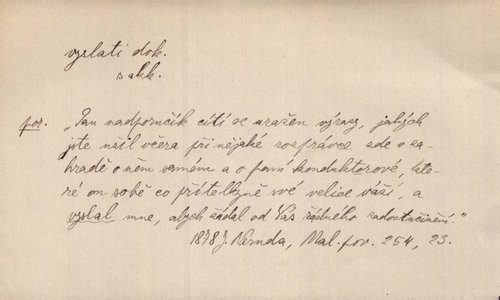 vyslati dok.
s akk.
poz. „Pan nadporučík cítí se uražen výrazy, jakých
jste užil včera při nějaké rozprávce zde v za-
hradě o něm samém a o paní konduktorové, kte-
ré on sobě co přítelkyně své velice váží, a
vyslal mne, abych žádal od Vás řádného zadostučinění."
1878 J. Neruda, Mal. pov. 254, 23.